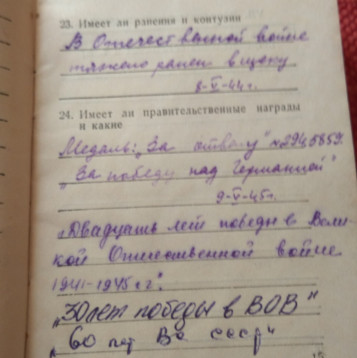 23. Имеет ли ранения и контузии
В Отечественной войне
тяжело ранен в щеку
8-V-44 г.
24. Имеет ли правительственные награды
и какие
Медаль: „За отвагу" № 2945859.
„За победу над Германией"
9-V-45 г.
„Двадцать лет победы в Вели-
кой Отечественной войне
1941-1945 г г."
„30 лет победы в ВОВ"
„60 лет Вс СССР"
15